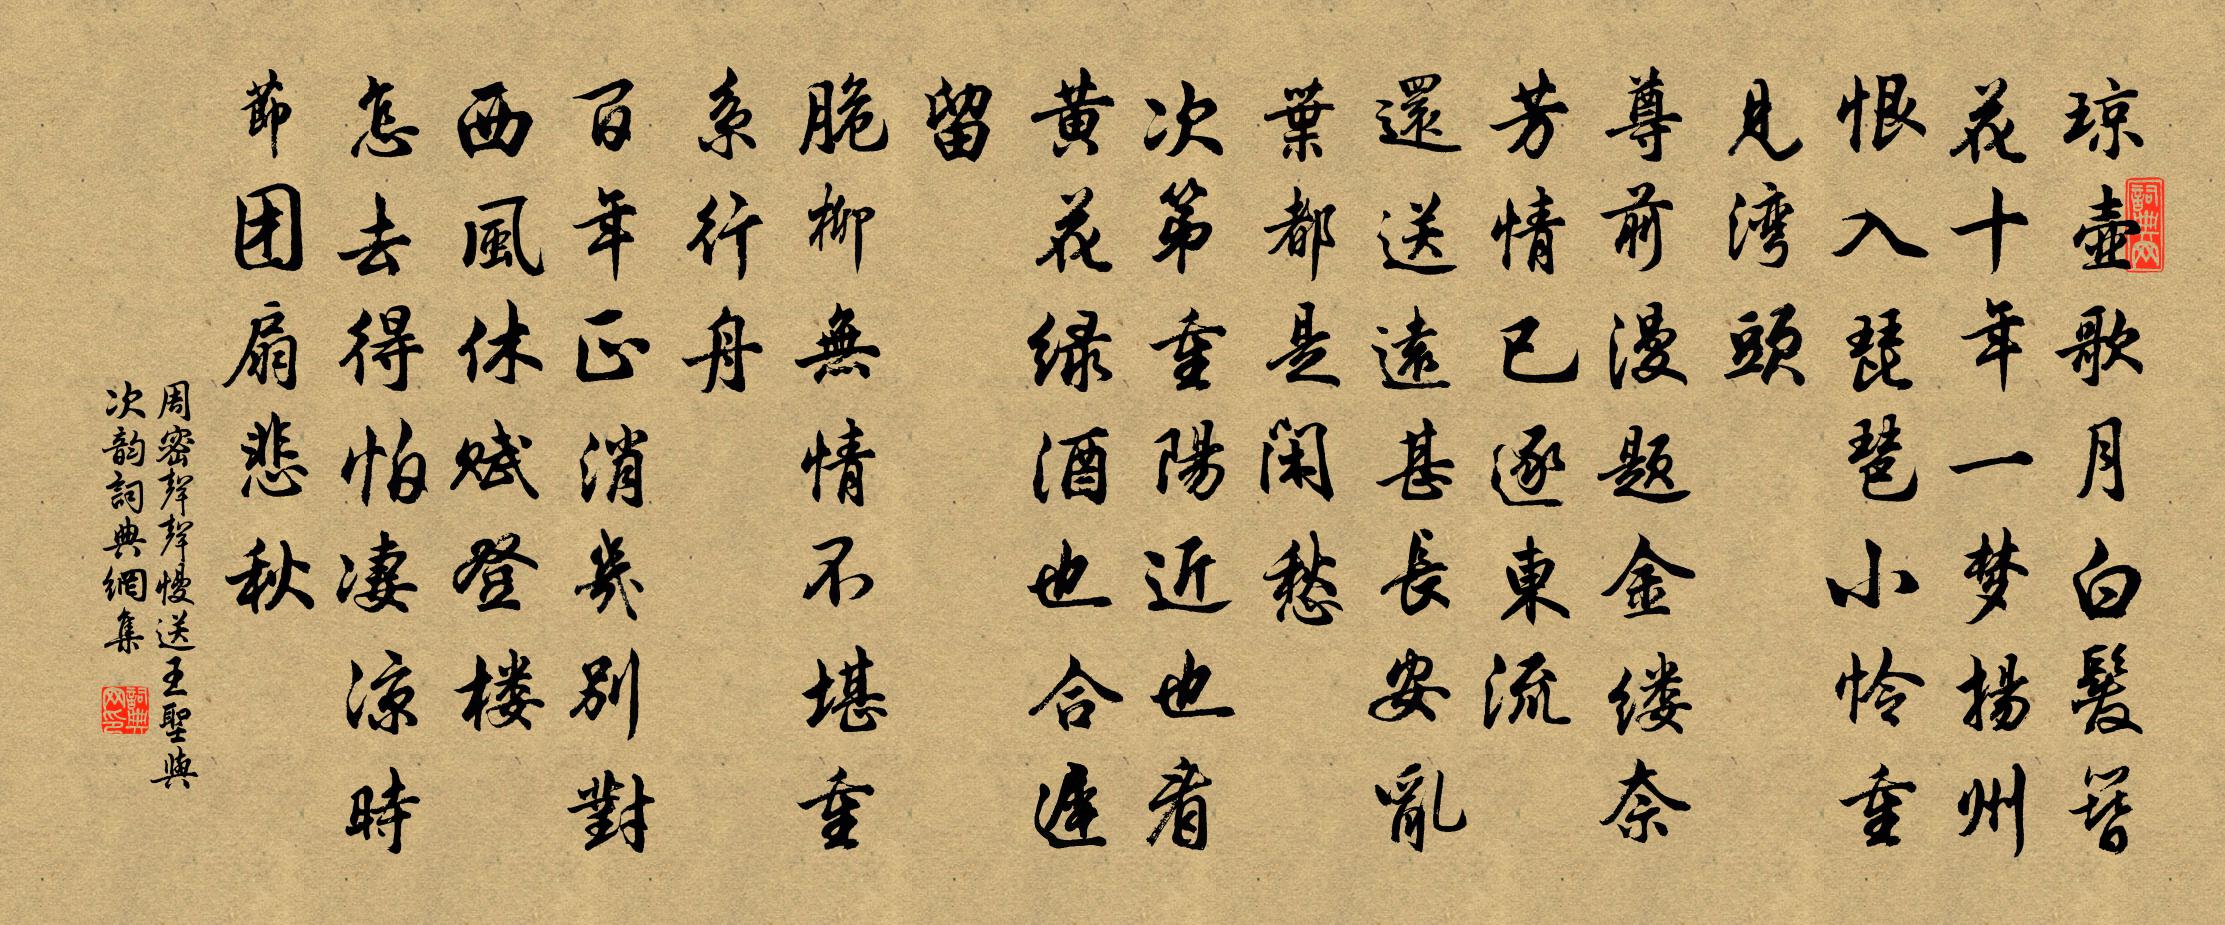 琼壺歌月白髮簪
花十年一梦揚州
恨入琵琶小怜重
見湾頭
尊前漫题金缕奈
芳情已逐東流
還送遠甚長安亂
葉都是閑愁
次第重陽近也看
黄花绿酒也合遲
留
脆柳無情不堪重
系行舟
百年正消幾别對
西風休赋登楼
怎去得怕凄涼時
節团扇悲秋
周密聲聲慢送王聖與
次韵詞典網集
詞典网
詞典网印